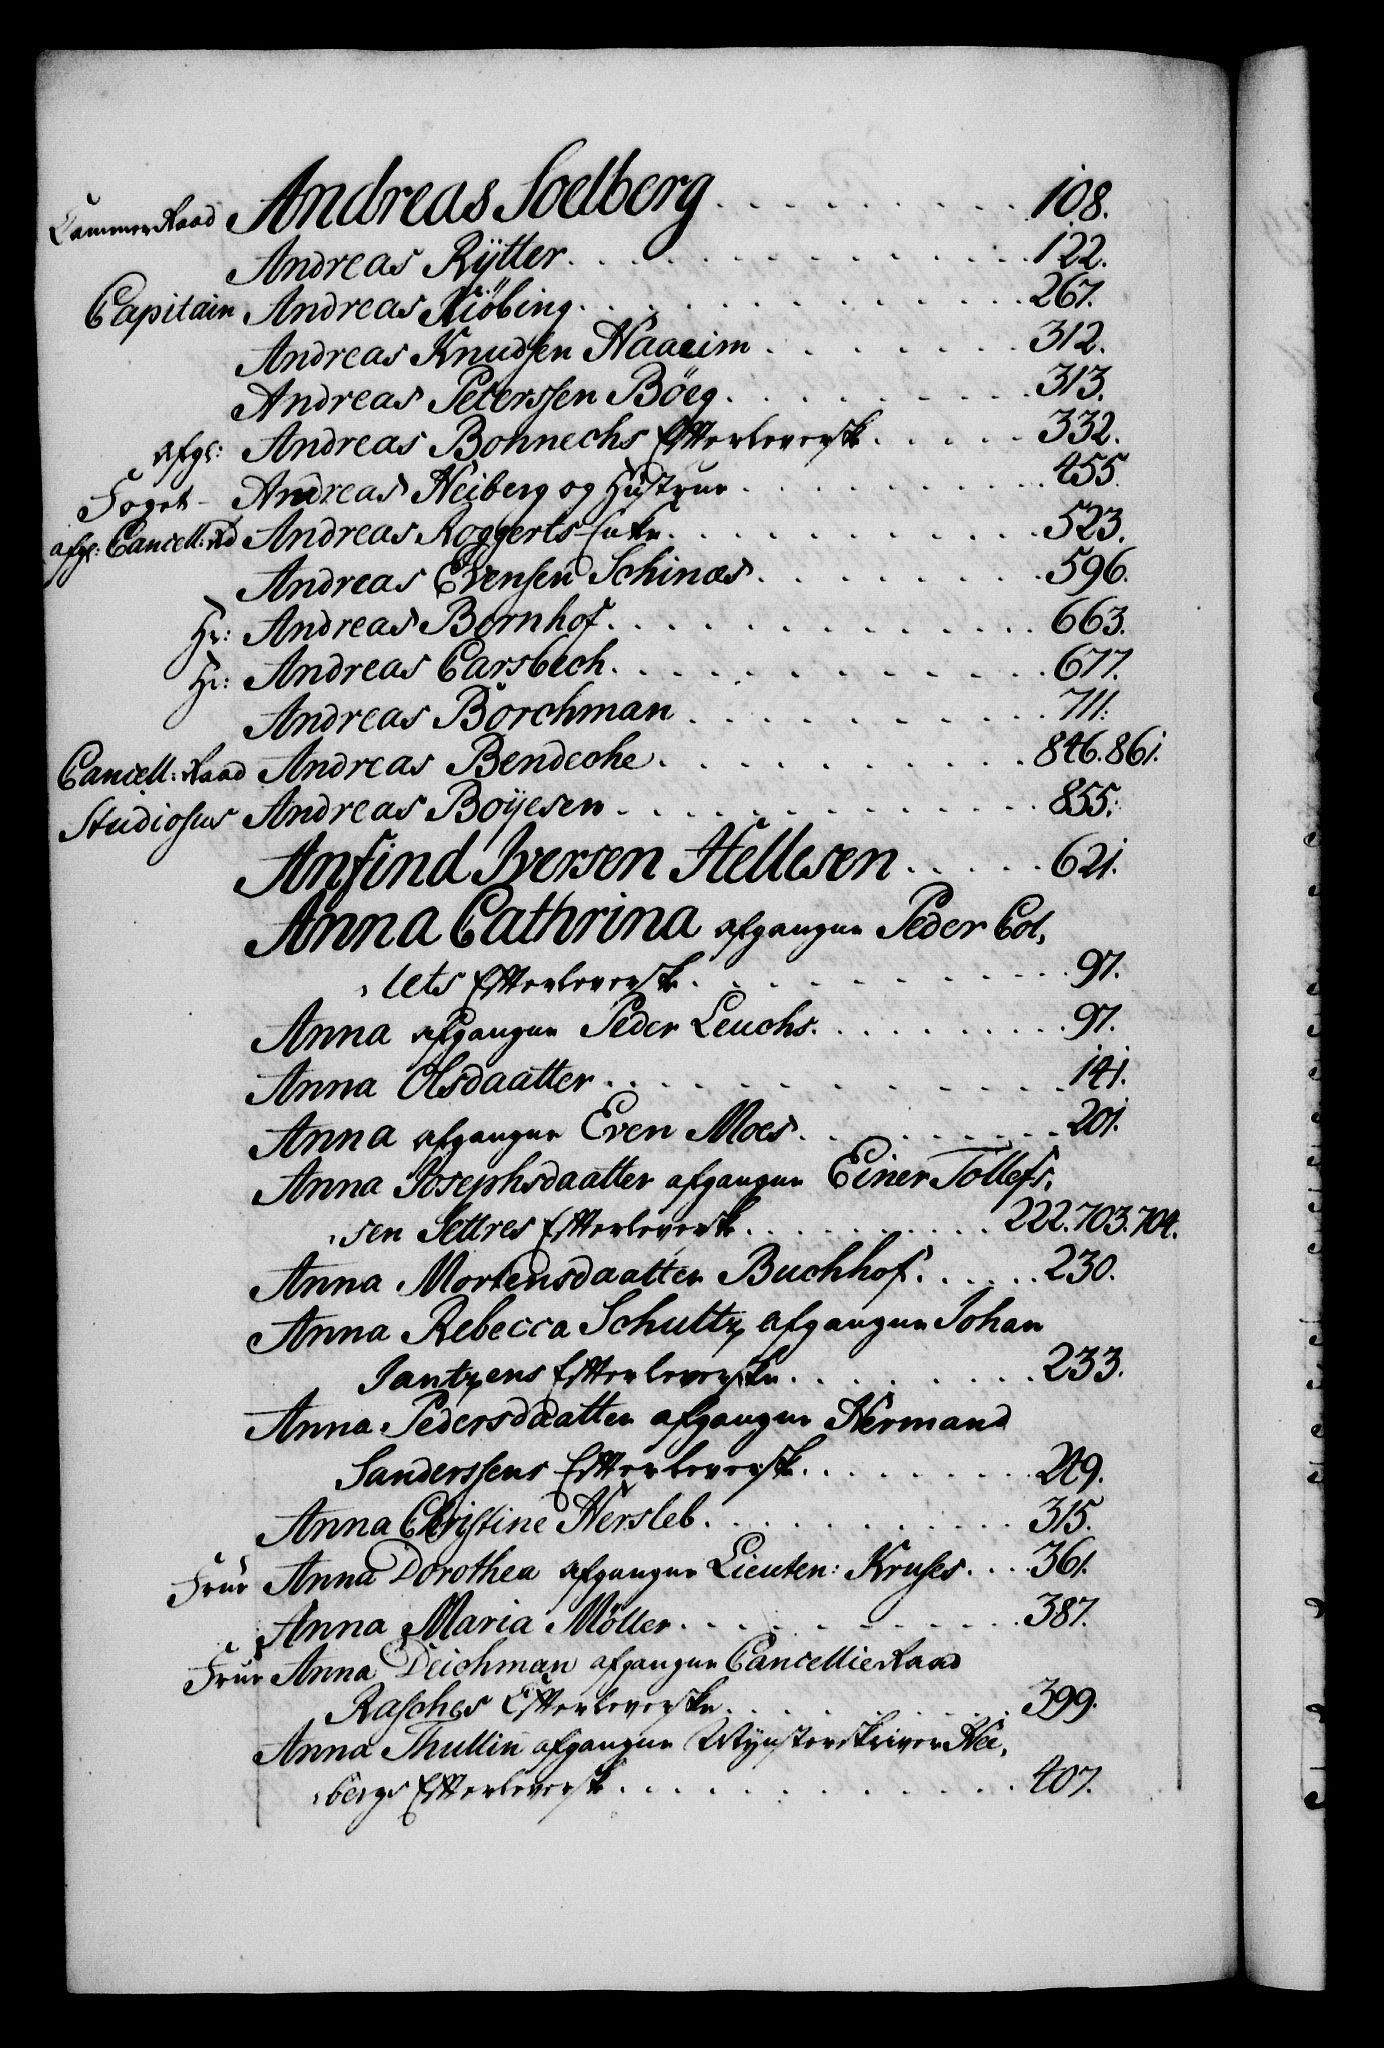 CammerRaad Andreas Soelberg . . . . . . . . . . 108.
Andreas Rÿtter . . . . . . . . . . . . . . 122.
Capitain Andreas Kiöbing . . . . . . . . . . . . . . 267.
Andreas Knudsen Haaeim . . . . . . . . 312.
Andreas Peterssen Böeg . . . . . . . . . . 313.
afg: Andreas Bohnechs Efterleversk . . . . . 332.
Foget- Andreas Heiberg og Hustrue . . . . . . . . . . 455.
afg: Cancell: Rd Andreas Roggerts Enke . . . . . . . . . . . . 523.
Andreas Evensen Schinæs . . . . . . . . . 596.
Hr: Andreas Bornhof . . . . . . . . . . . . . . 663.
Hr: Andreas Carsbech . . . . . . . . . . . . . . 677.
Andreas Borchman . . . . . . . . . . . . 711.
Cancell: Raad Andreas Bendeche . . . . . . . . . . . 846. 861.
Studiosus Andreas Boÿesen . . . . . . . . . . . . . 855.
Anfind Iversen Hellesen . . . . . 621.
Anna Cathrina afgangne Peder Col,
, lets Efterleversk . . . . . . . . . . . 97.
Anna afgangne Peder Leuchs . . . . . . . . 97.
Anna Olsdaatter . . . . . . . . . . . . . . 141.
Anna afgangne Even Moes . . . . . . . . . 201.
Anna Josephsdaatter afgangne Einer Tollefs,
, sen Settres Efterleversk . . . . . . . . . 222. 703. 704.
Anna Mortensdaatter Buchhof . . . . . 230.
Anna Rebecca Schultz afgangne Johan
Jantzens Efterleverske . . . . . . . . 233.
Anna Pedersdaatter afgangne Hermand
Sanderssens Efterleversk . . . . . . . . 249.
Anna Christine Hersleb . . . . . . . . . . 315.
Frue Anna Dorothea afgangne Lieuten: Kruses . . . 361.
Anna Maria Möller . . . . . . . . . . . 387.
Frue Anna Deichman afgangne CancellieRaad
Rasches Efterleverske . . . . . . . . . 399.
Anna Thullin afgangne Mÿnsterskriver Hei,
, bergs Efterleversk . . . . . . . . . . . . 407.